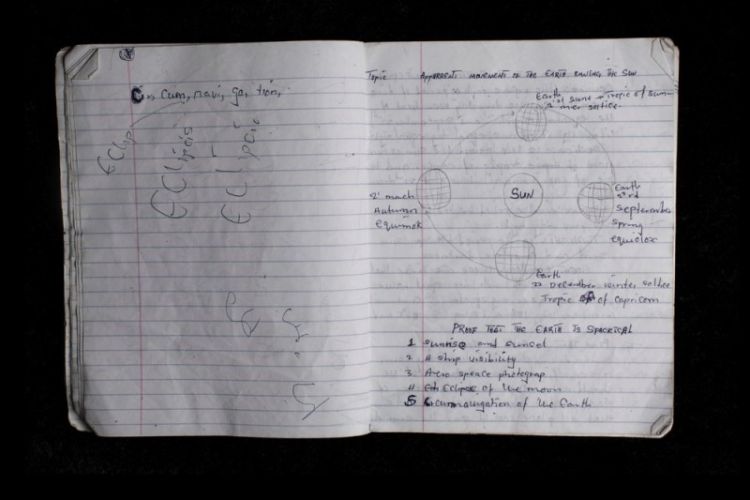 Cum, navi, ga, tion,
Eclip
Eclipsis
Eclipsis
Topic Apparent movement of the Earth rowing the sun
Earth
21st June Tropic of
mer soltice
SUN
21 mach
Autumn
Equinok
Earth
23rd
September
Spring
equinox
Earth
22 December winter soltice
Tropic of of capricorn
PROOF THAT THE EARTH IS SPACRICAL
1 sunrise and sunset
2 A ship visibility
3 Aero spence photograp
4 Eclipse of the moon
5 Circumnavigation of the Earth